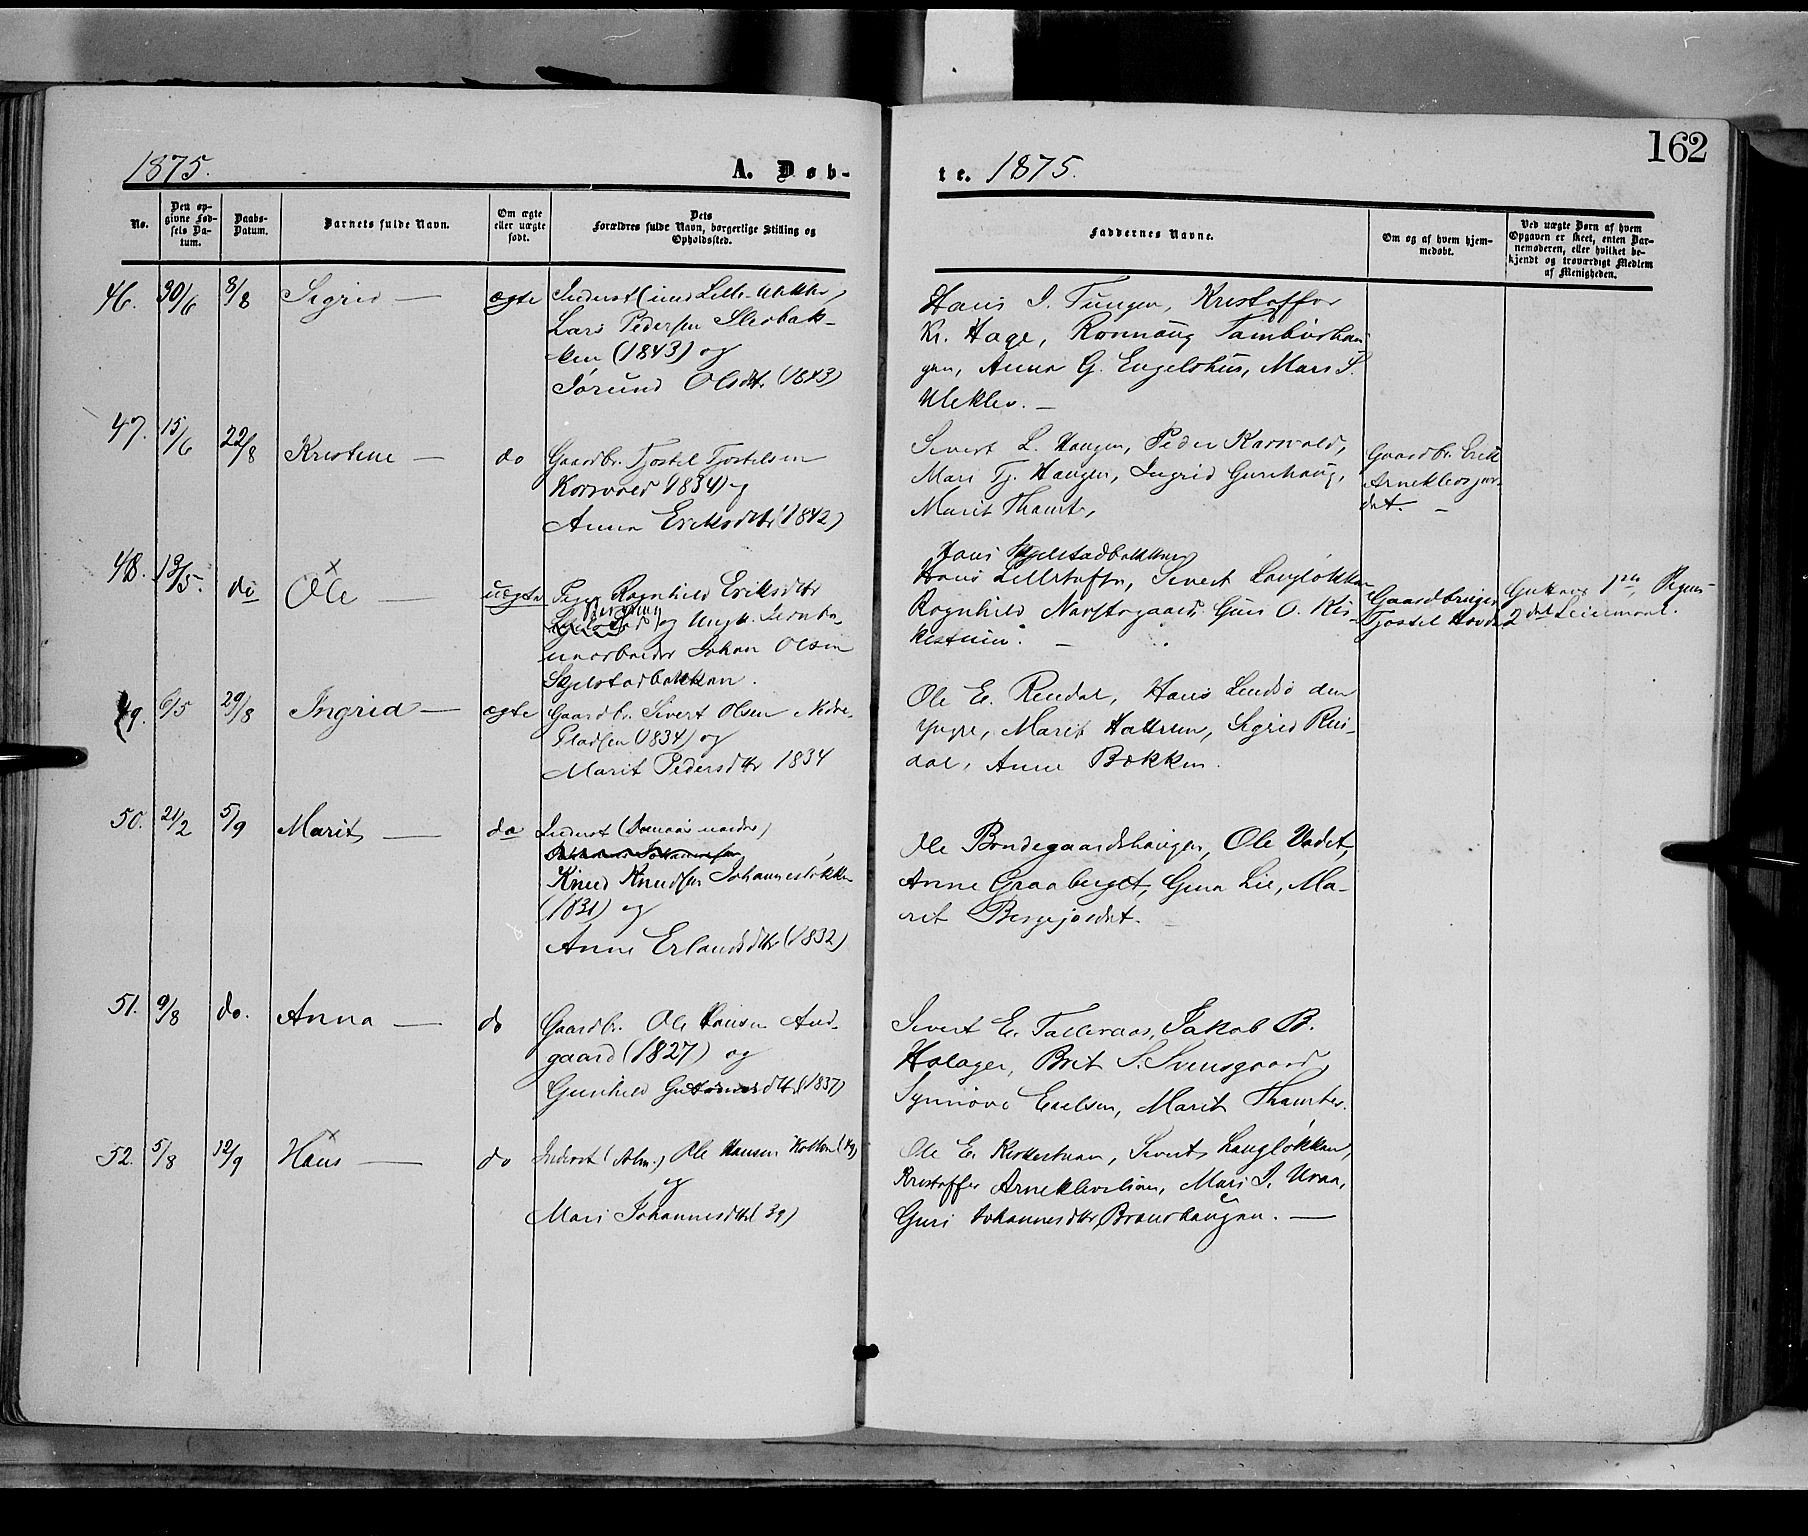 162
1875. A. Døb-
te. 1875.
No.
Den op-
givne Fød-
sels Da-
tum.
Daabs-
Datum.
Barnets fulde Navn.
Om ægte
eller uægte
født.
Dets
Forældres fulde Navn, borgerlige Stilling og
Opholdssted.
Faddernes Navne.
Om og af hvem hjem-
medøbt.
Ved uægte Børn af hvem
Opgaven er skeet, enten Bar-
nemoderen, eller hvilket be-
kjendt og troværdigt Medlem
af Menigheden.
46. 30/6 8/8 Sigrid — ægte
Lars Pedersen
(1843) og
Jorund Olsdtr (1843)
Hans J. Tungen, Kristoffer
Kr. Hage, Ronnaug Tambürhau-
gen, Anne G. Engelshus, Mari S.
Ulekler. —
47. 15/6 22/8 Kristine — do
Gaardbr. Tjostel Tjostelsen
Korsvold (1834) og
Anna Eriksdtr (1842)
Sivert L. Haugen, Peder Karsvold,
Mari Tj. Haugen, Ingrid
Marit Thamts,
Gaardbr. Erik
Arneklevsjor-
det. —
48. 13/5. do Ole — uægte
Pige Ragnhild Eriksdtr
og Ungk. Jernba-
nearbeider Johan Olsen
Skjelstadbakken.
Hans Skjelstadbakken
Hans Sivert Langløkken
Ragnhild Guri O. Kir-
kestuen. —
Gaardbruger
Tjostel
2det Leiermaal.
49. 6/5 29/8 Ingrid — ægte
Gaardbr. Sivert Olsen Nedre-
Pladsen (1834) og
Marit Pedersdtr 1834
Ole E. Rendal, Hans Lindsø den
yngre, Marit Sigrid Ren-
dal, Anne Bækken.
50. 21/2 5/9 Marit — do
Inderst
Knud Knudsen Johannesløkken
(1831) og
Anne Erlandsdtr (1832)
Ole Bondegaardshaugen, Ole Vadet,
Anne Graaberget, Gura Lie, Ma-
rit Bergejordet.
51. 9/8 do. Anna — do
Gaardbr. Ole Hansen Aud-
gaard (1827) og
Gunhild Guttormsdtr (1837)
Sivert E. Talleraas, Jakob B.
Holager, Brit S. Svensgaard,
Synnøve Marit Thamtes.
52. 5/8 12/9 Hans — do
Inderst (Alm.) Ole Hansen
og
Mari Johannesdtr (39)
Ole E. Kirkestuen, Sivert Langløkken,
Kristoffer Arneklevlien, Mari J. Uraa,
Guri Johannesdtr Brandhaugen. —